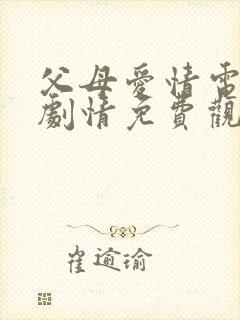 父母愛情電
劇情免費觀
崔逾瑜